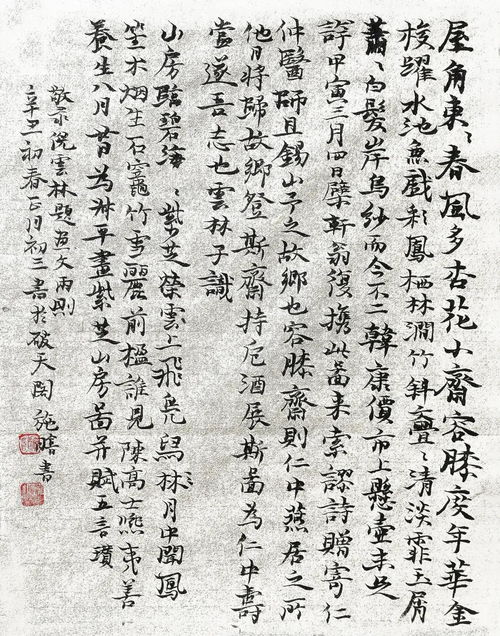 屋角東〻春風多杏花小齋容膝度年華金
梭躍水池魚戲彩鳳栖林澗竹斜亹〻清淡霏玉屑
蕭〻白髮岸烏紗而今不二韓康價市上懸壺未足
誇甲寅三月四日檗軒翁復攜此啚来索謬詩贈寄仁
仲醫師且錫山予之故鄉也容膝齋則仁中燕居之所
他日將歸故鄉登斯齋持卮酒展斯啚為仁中壽
當遂吾志也雲林子識
山房臨碧海〻紫芝榮雲上飛鳧舃林〻月中聞鳳
笙术烟生石竈竹雪麗前楹誰見陳高士熙夷善
養生八月昔為淋平畫紫芝山房啚并賦五言瓚
敬录倪雲林題畫文兩則
辛丑初春正月初三書於破天閣施書